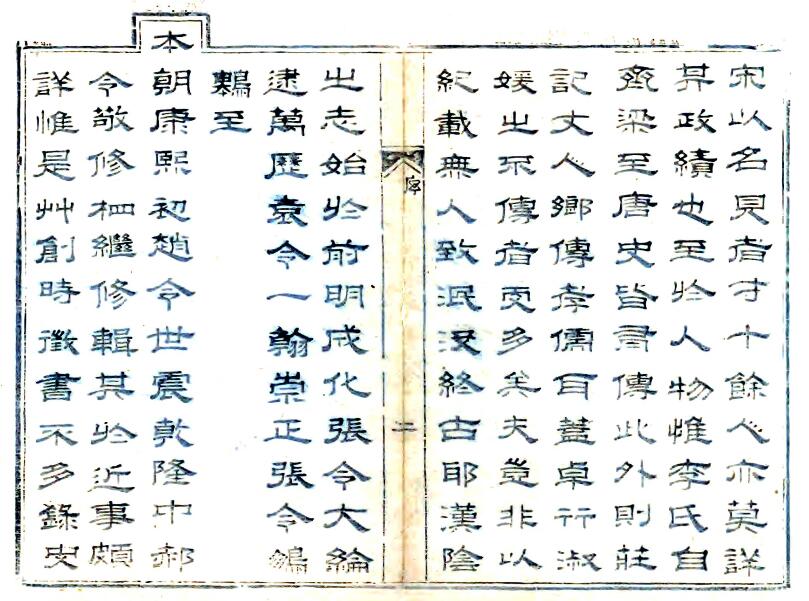 宋以名見者才十餘人亦莫詳
其政績也至於人物惟李氏自
齊梁至唐史皆有傳此外則莊
記丈人鄉傳孝儒耳蓋卓行淑
媛之不傳者更多矣夫豈非以
紀載無人致泯沒終古耶漢陰
序
二
之志始於前明成化張令大綸
逮萬歷袁令一翰崇正張令
至
本朝康熙初趙令世震乾隆中郝
令敬修相繼修輯其於近事頗
詳惟是艸創時徵書不多錄史